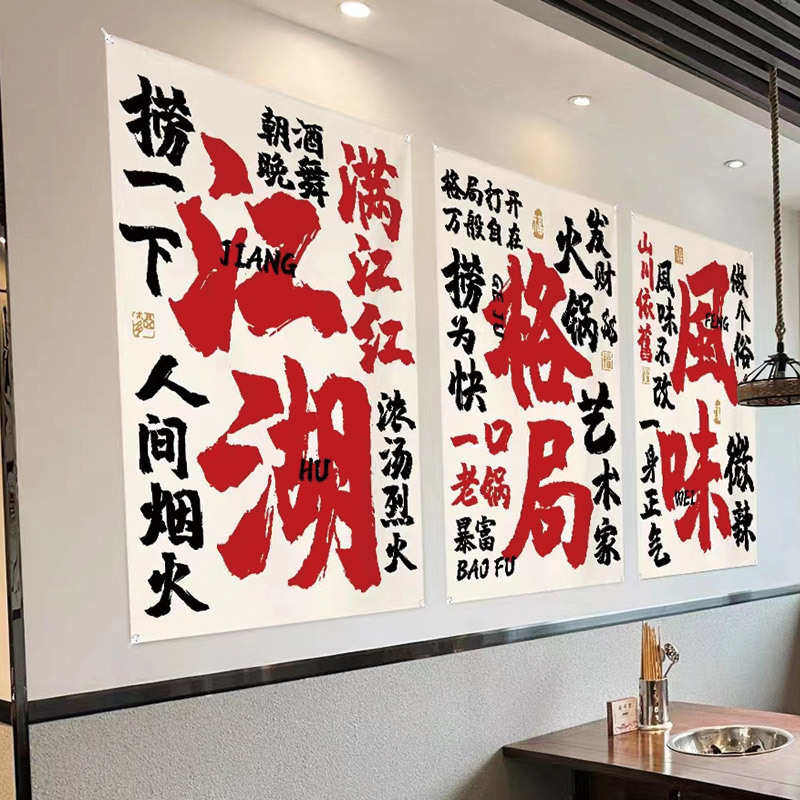 捞一下
朝酒
晚舞
满江红
江湖
JIANG
HU
人间烟火
浓汤烈火
格局打开
万般自在
发财
火锅
捞为快
格局
GE JU
一口
老锅
艺术家
暴富
BAO FU
山川依旧
風味不改
風味
FENG
WEI
做个俗
微辣
一身正气